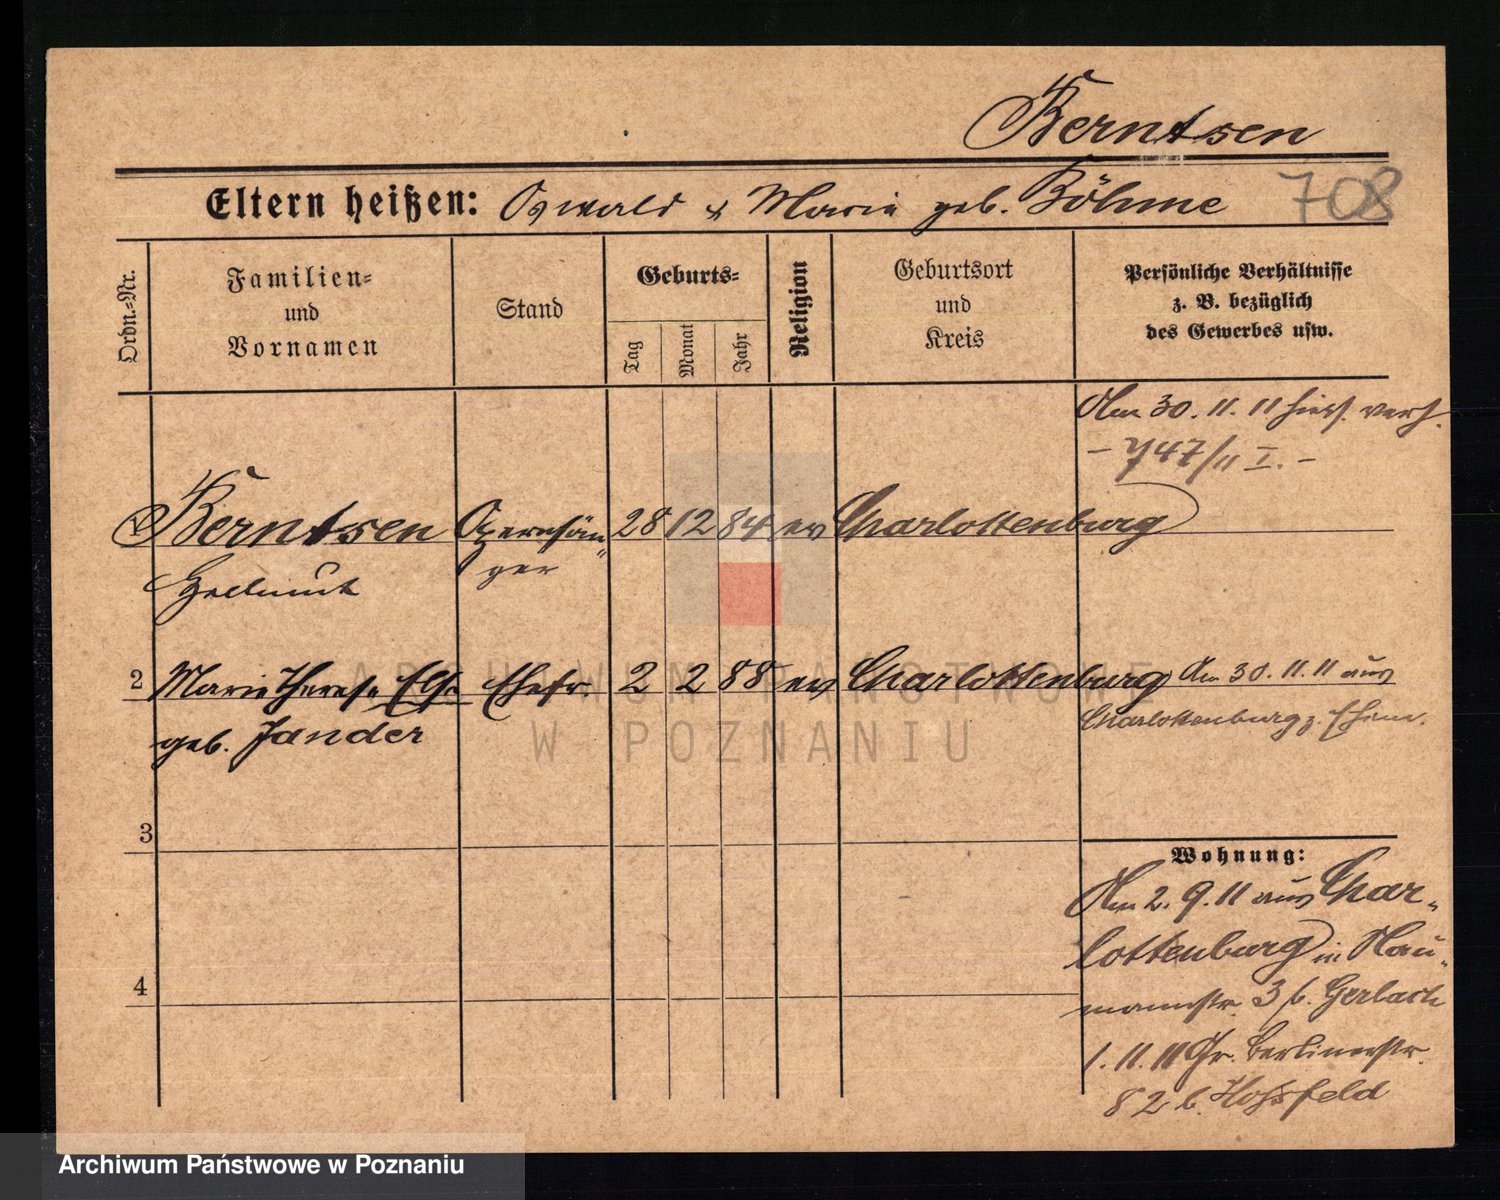 Berntsen
Eltern heißen: Oswald & Marie geb. Böhme 708
Ordn.-Nr.
Familien-
und
Vornamen
Stand
Geburts-
Tag
Monat
Jahr
Religion
Geburtsort
und
Kreis
Persönliche Verhältnisse
z. B. bezüglich
des Gewerbes usw.
Am 30.11.11 hier verh.
- 747/11 I. -
1 Berntsen Opernsän- 28 12 84 ev Charlottenburg
Helmut ger
2 Marie Therese Else Ehefr. 2 2 88 ev Charlottenburg Am 30.11.11 aus
geb. Jander Charlottenburg z. Ehem.
3
4
Wohnung:
Am 2.9.11 aus Char-
lottenburg in Nau-
mannstr. 3 b. Gerlach
1.11.11 Gr. Berlinerstr.
82 b. Hossfeld
ARCHIWUM PAŃSTWOWE
W POZNANIU
Archiwum Państwowe w Poznaniu